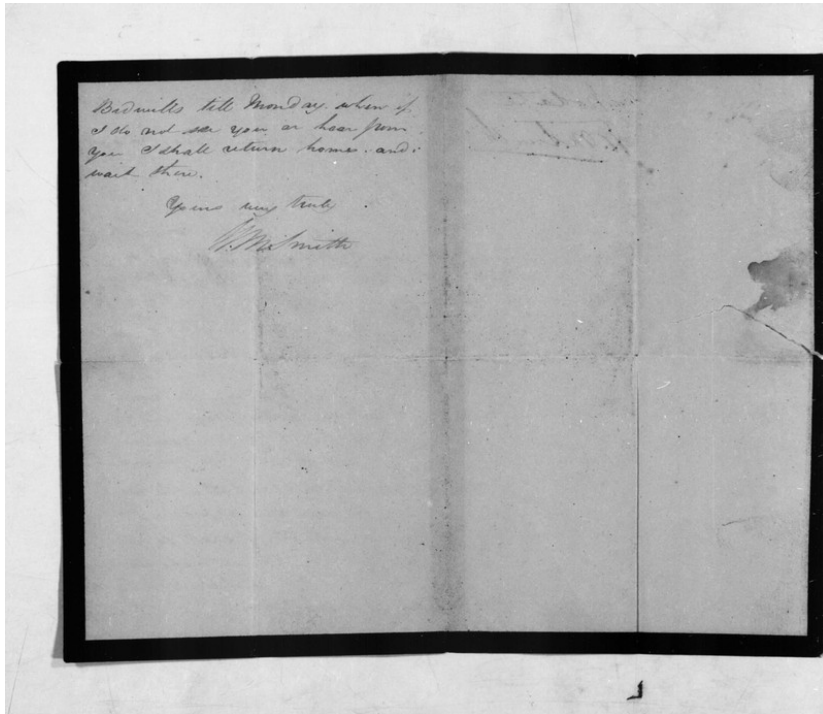 Bidwills till Monday. when if
I do not see you or hear from
you I shall return home. and
wait there.
Yours very truly
W. M. Smith